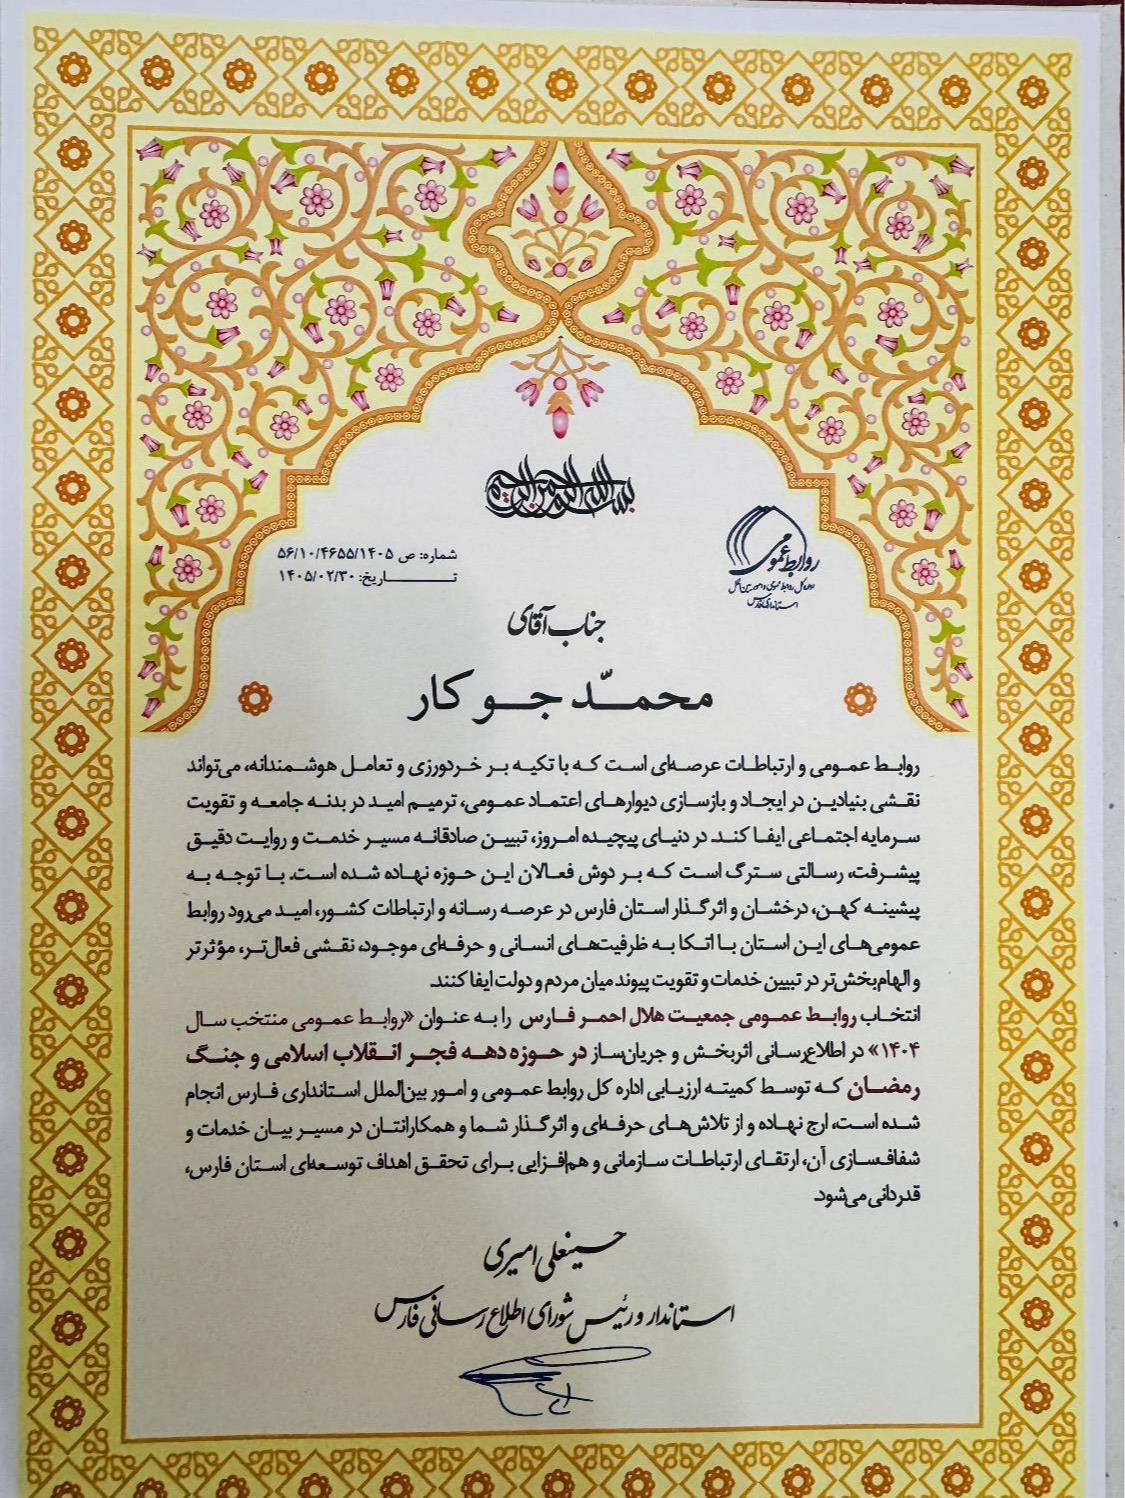 بسم الله الرحمن الرحیم
روابط عمومی
اداره کل روابط عمومی و امور بین الملل
استانداری فارس
شماره: ص ۵۶/۱۰/۴۶۵۵/۱۴۰۵
تـاریخ: ۱۴۰۵/۰۲/۳۰
جناب آقای
محمّد جوکار
روابط عمومی و ارتباطات عرصه‌ای است که با تکیه بر خردورزی و تعامل هوشمندانه، می‌تواند
نقشی بنیادین در ایجاد و بازسازی دیوارهای اعتماد عمومی، ترمیم امید در بدنه جامعه و تقویت
سرمایه اجتماعی ایفا کند. در دنیای پیچیده امروز، تبیین صادقانه مسیر خدمت و روایت دقیق
پیشرفت، رسالتی سترگ است که بر دوش فعالان این حوزه نهاده شده است. با توجه به
پیشینه کهن، درخشان و اثرگذار استان فارس در عرصه رسانه و ارتباطات کشور، امید می‌رود روابط
عمومی‌های این استان با اتکا به ظرفیت‌های انسانی و حرفه‌ای موجود، نقشی فعال‌تر، مؤثرتر
و الهام‌بخش‌تر در تبیین خدمات و تقویت پیوند میان مردم و دولت ایفا کنند.
انتخاب روابط عمومی جمعیت هلال احمر فارس را به عنوان «روابط عمومی منتخب سال
۱۴۰۴» در اطلاع‌رسانی اثربخش و جریان‌ساز در حوزه دهه فجر انقلاب اسلامی و جنگ
رمضان که توسط کمیته ارزیابی اداره کل روابط عمومی و امور بین‌الملل استانداری فارس انجام
شده است، ارج نهاده و از تلاش‌های حرفه‌ای و اثرگذار شما و همکارانتان در مسیر بیان خدمات و
شفاف‌سازی آن، ارتقای ارتباطات سازمانی و هم‌افزایی برای تحقق اهداف توسعه‌ای استان فارس،
قدردانی می‌شود.
حسینعلی امیری
استاندار و رئیس شورای اطلاع رسانی فارس